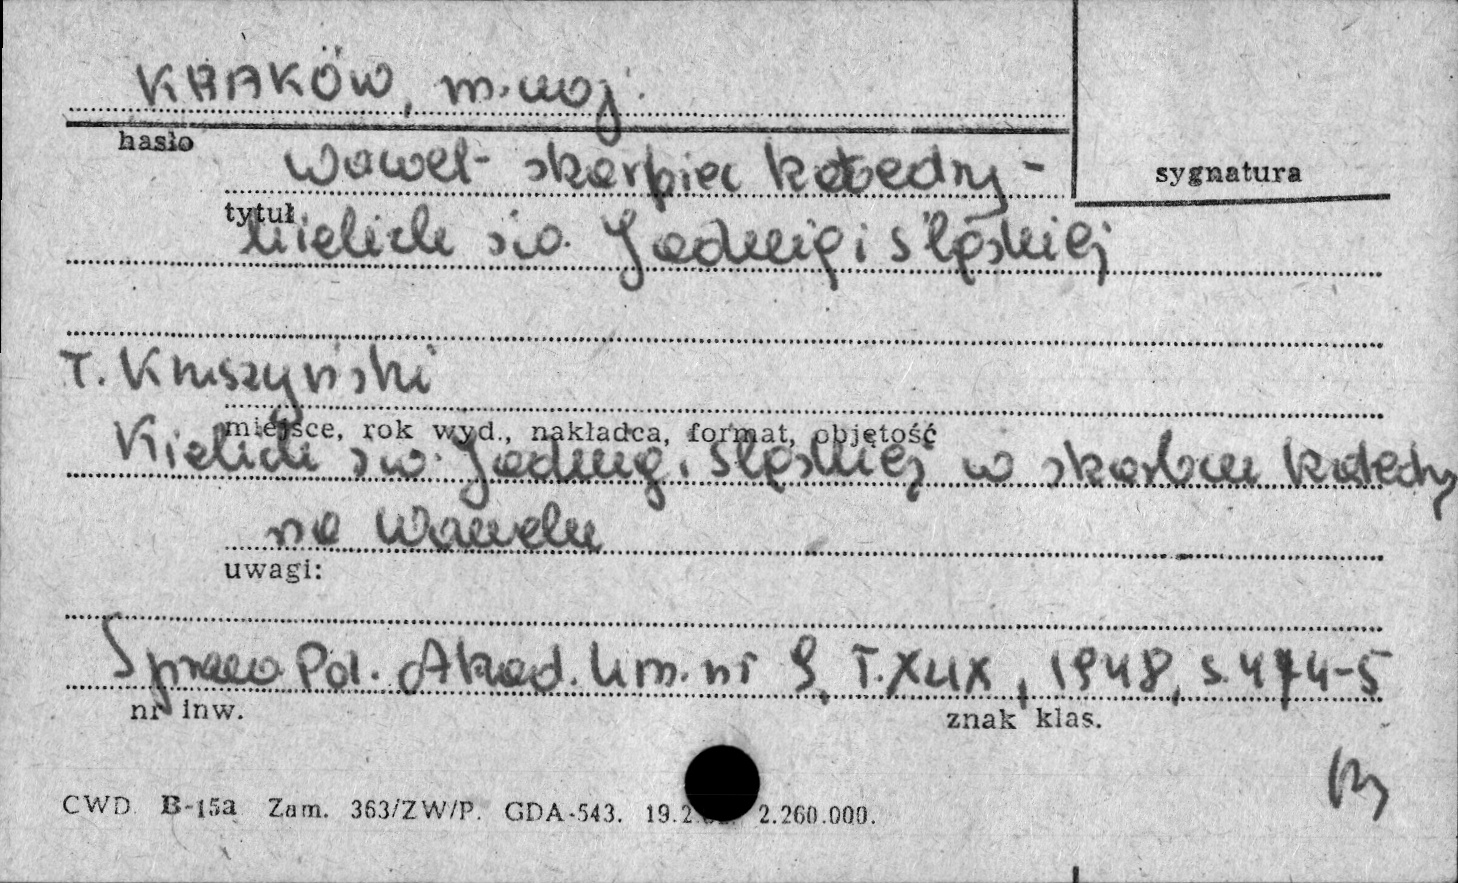 KRAKÓW, m. woj.
hasło
Wawel - skarbiec katedry -
sygnatura
tytuł
kielich św. Jadwigi Śląskiej
T. Kruszyński
miejsce, rok wyd., nakładca, format, objętość
Kielich św. Jadwigi Śląskiej w skarbcu katedry
na Wawelu
uwagi:
Spraw Pol. Akad. Um. nr 9, T. XLIX, 1948, s. 474-5
nr inw.
znak klas.
CWD. B-15a Zam. 363/ZW/P. GDA-543. 19.2 2.260.000.